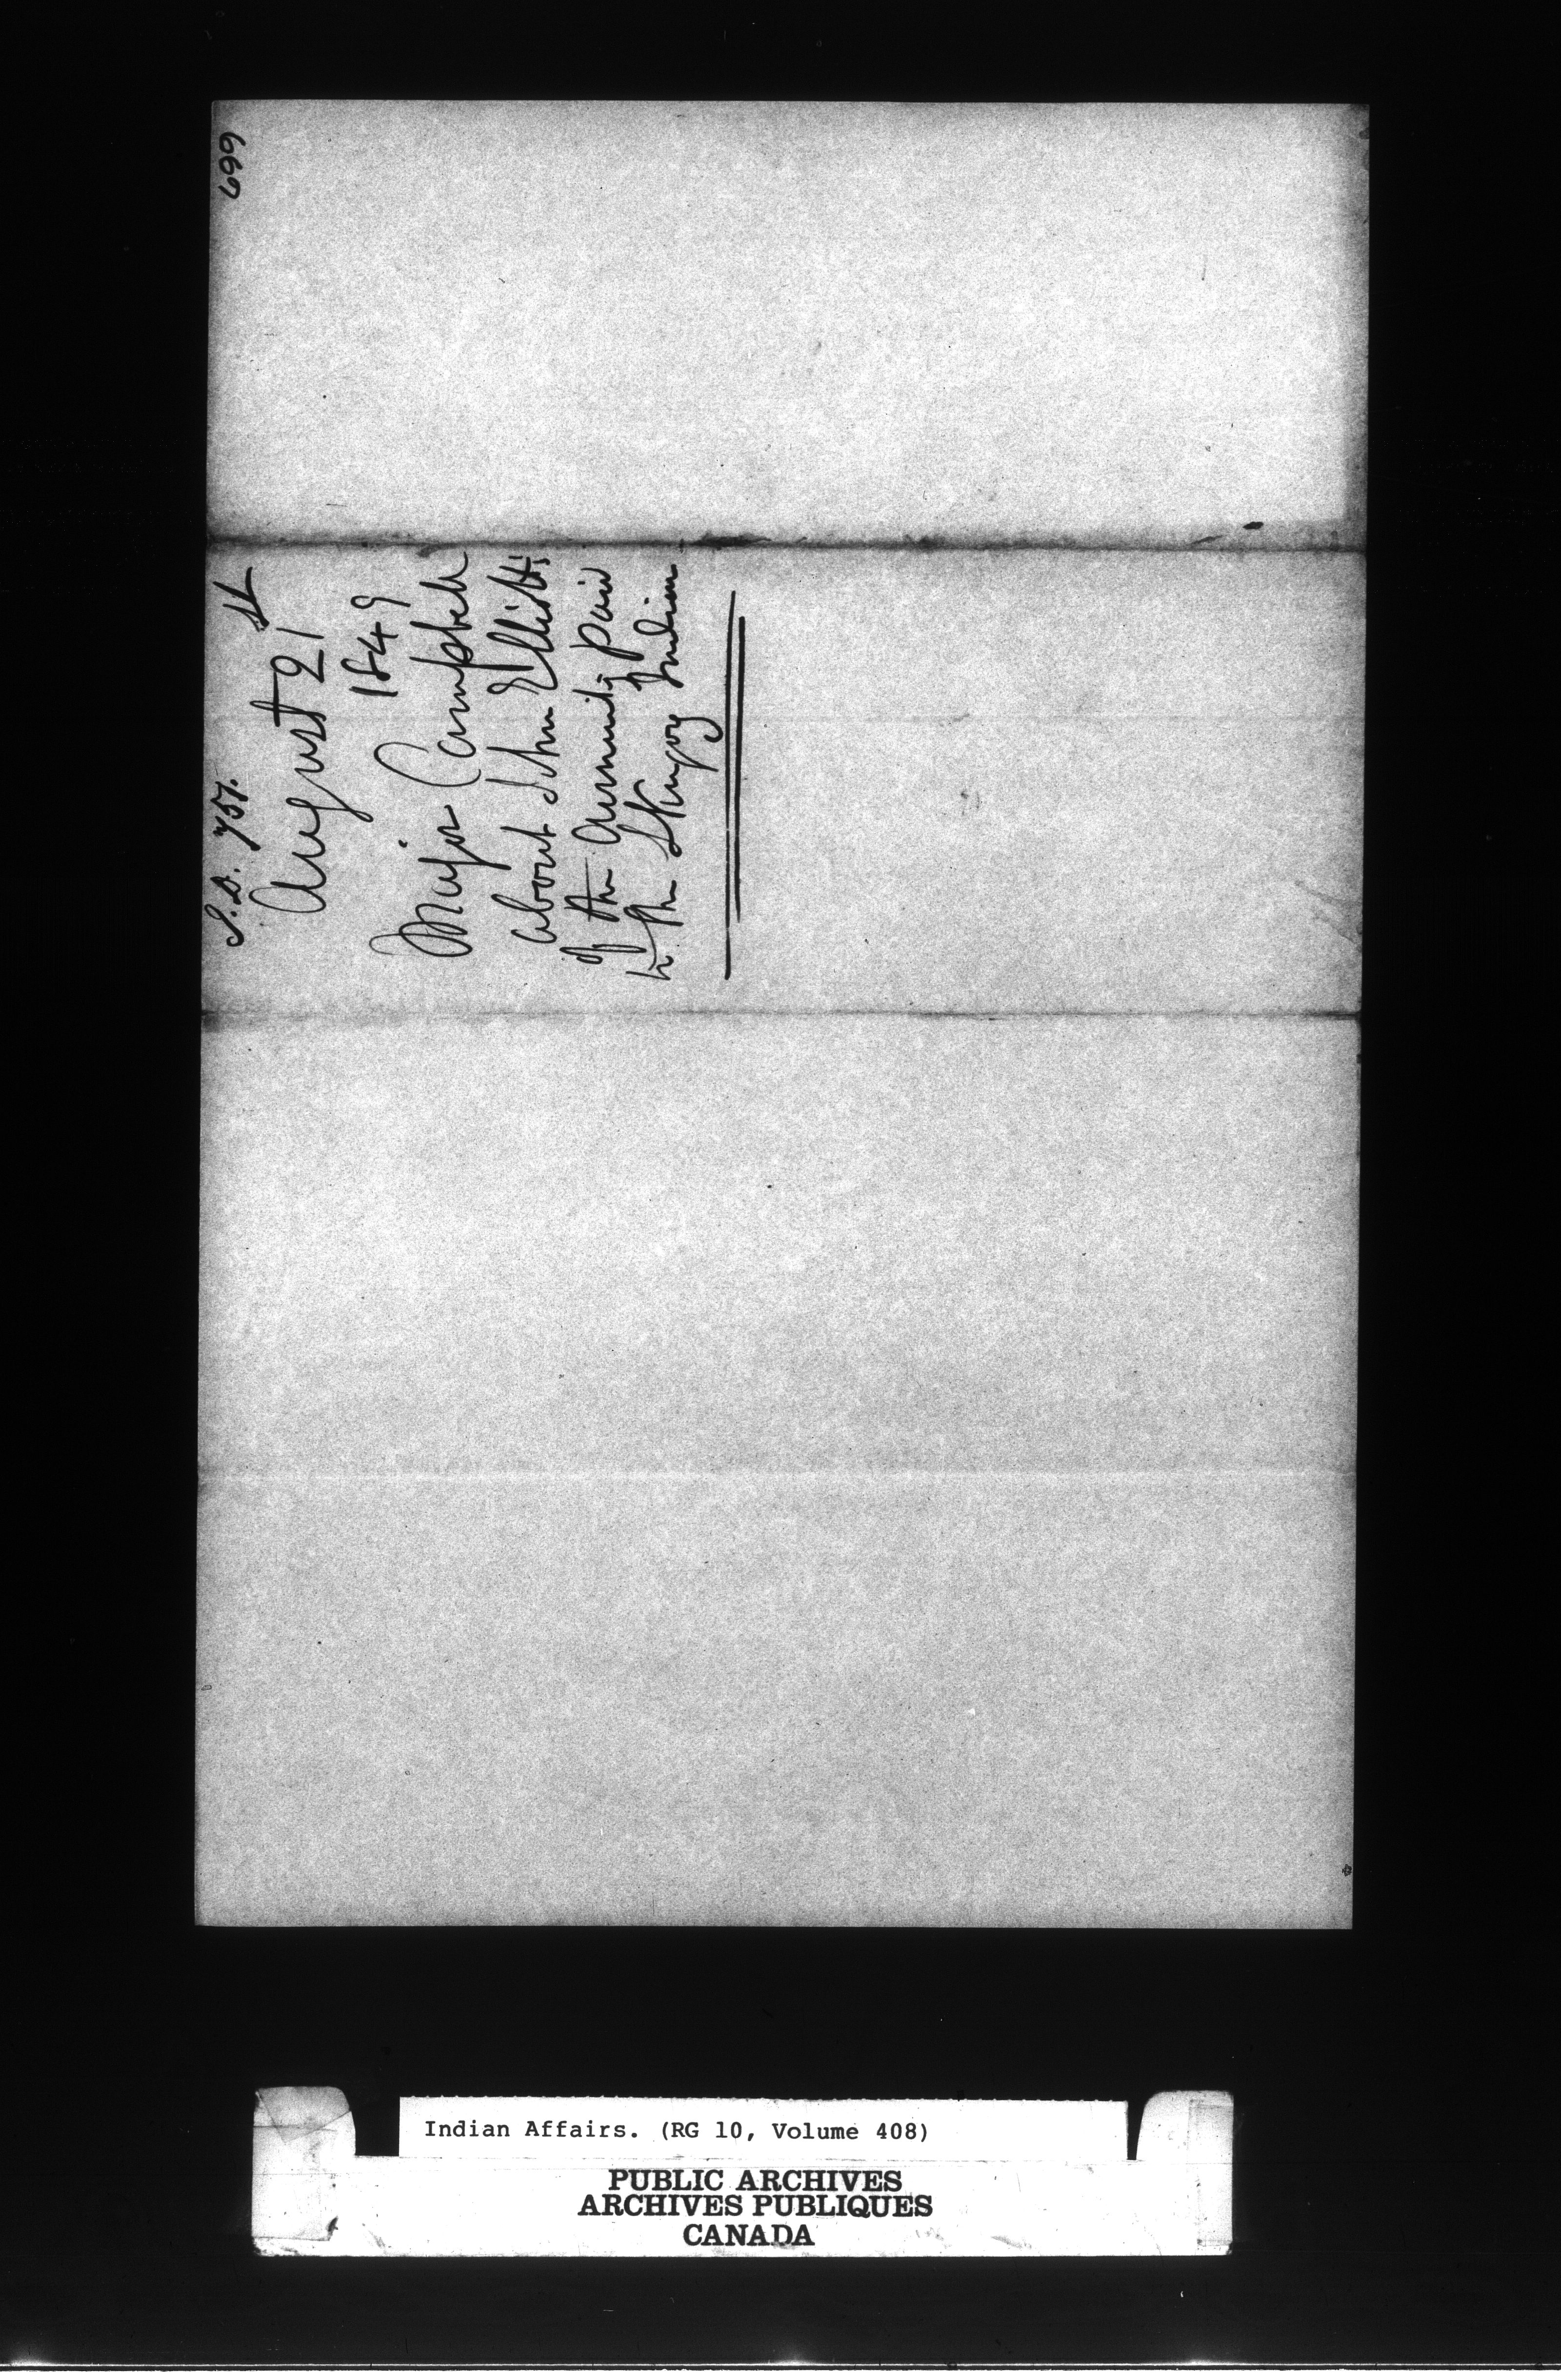 669
S.D. 757.
August 21st
1849
Major Campbell
about John Elliott's
of the annuity paid
to the Indian
Indian Affairs. (RG 10, Volume 408)
PUBLIC ARCHIVES
ARCHIVES PUBLIQUES
CANADA